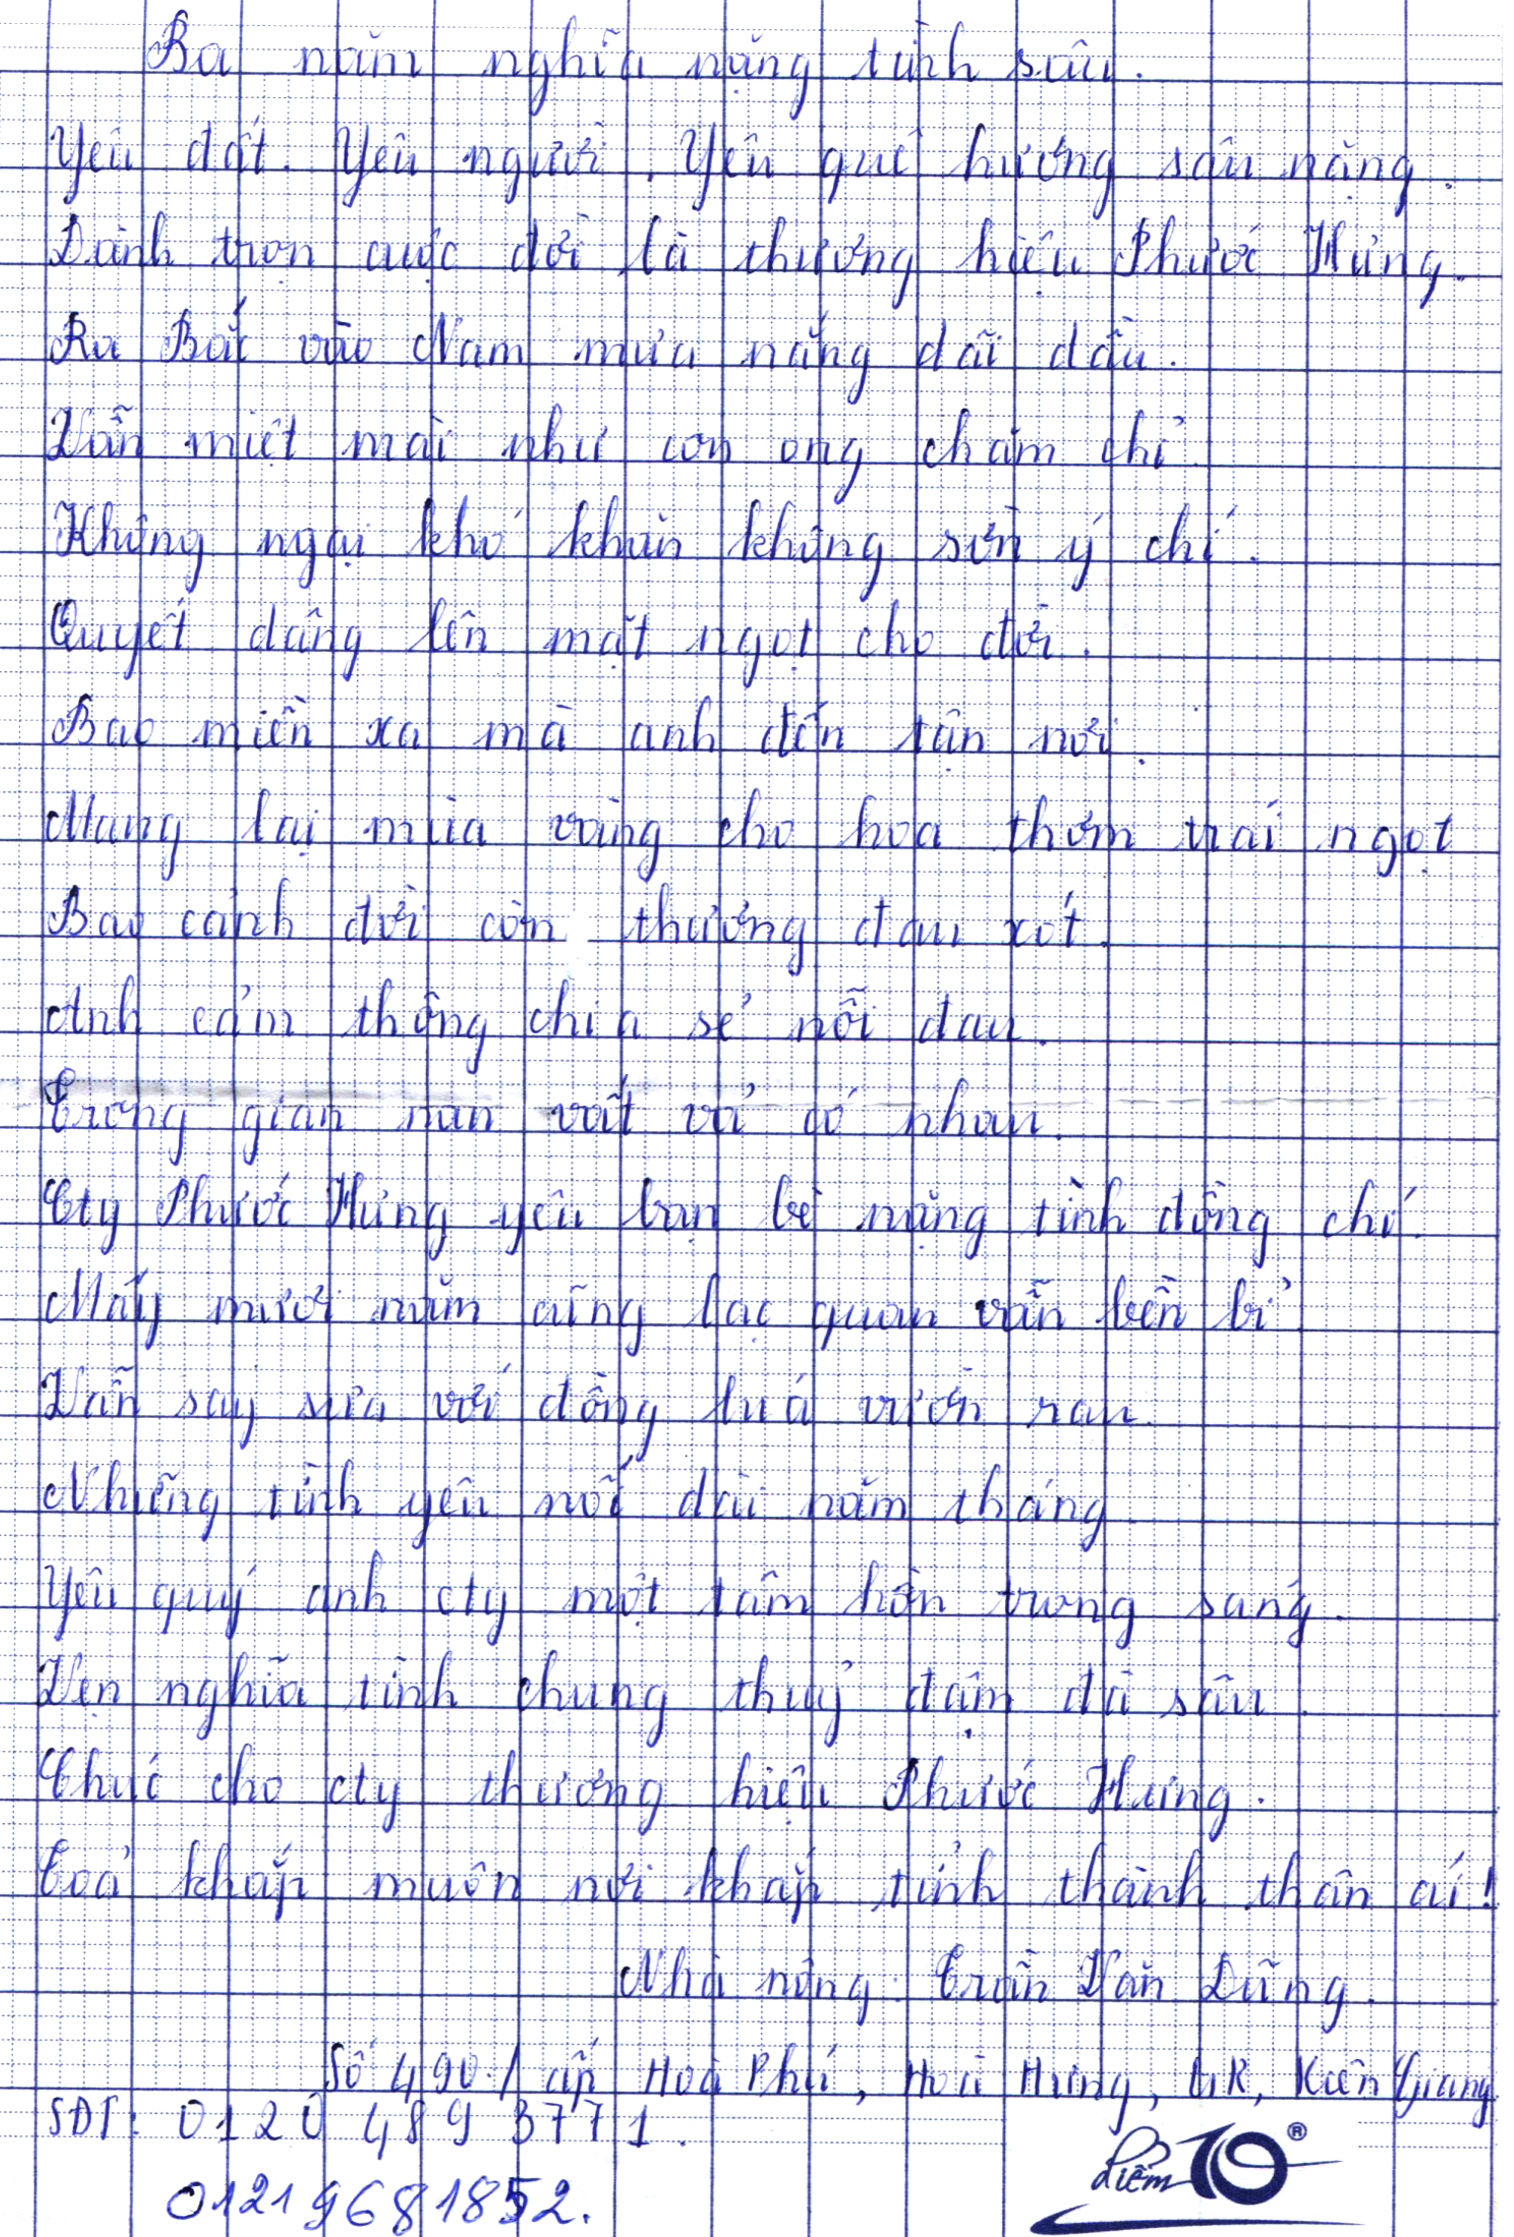 Ba năm nghĩa nặng tình sâu.
Yêu đất. Yêu người. Yêu quê hương sâu nặng.
Dành trọn cuộc đời là thương hiệu Phước Hưng.
Ra Bắc vào Nam mưa nắng dãi dầu.
Vẫn miệt mài như con ong chăm chỉ.
Không ngại khó khăn không sờn ý chí.
Quyết dâng lên mật ngọt cho đời.
Bao miền xa mà anh đến tận nơi.
Mang lại mùa vàng cho hoa thơm trái ngọt
Bao cảnh đời còn thương đau xót.
Anh cảm thông chia sẻ nỗi đau.
Trong gian nan vất vả có nhau.
Cty Phước Hưng yêu bạn bè nặng tình đồng chí.
Mấy mươi năm cũng lạc quan vẫn bền bỉ
Vẫn say sưa với đồng luá vườn rau.
Những tình yêu nối dài năm tháng
Yêu quý anh cty một tâm hồn trong sáng.
Vẹn nghĩa tình chung thuỷ đậm đà sâu.
Chúc cho cty thương hiệu Phước Hưng.
Toả khắp muôn nơi khắp tỉnh thành thân aí!
Nhà nông: Trần Văn Dũng.
Số 490/ ấp Hoà Phú, Hoà Hưng, GR, Kiên Giang
SĐT: 0120 489 3771.
01219681852.
điểm 10 ®